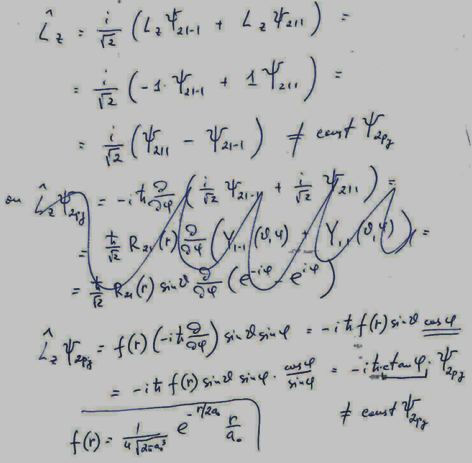 L̂_z = i/√2 (L_z ψ_{21-1} + L_z ψ_{211}) =
= i/√2 (-1·ψ_{21-1} + 1ψ_{211}) =
= i/√2 (ψ_{211} - ψ_{21-1}) ≠ const ψ_{2py}
L̂_z ψ_{2py} = -iħ ∂/∂φ (i/√2 ψ_{21-1} + i/√2 ψ_{211}) =
= ħ/√2 R_{21}(r) ∂/∂φ (Y_{1-1}(ϑ,φ) + Y_{11}(ϑ,φ)) =
= ħ/√2 R_{21}(r) sinϑ ∂/∂φ (e^{-iφ} - e^{iφ})
L̂_z ψ_{2py} = f(r) (-iħ ∂/∂φ) sinϑ sinφ = -iħ f(r) sinϑ cosφ
= -iħ f(r) sinϑ sinφ · cosφ/sinφ = -iħ·ctanφ·ψ_{2py}
≠ const ψ_{2py}
f(r) = 1/(4√(2πa₀³)) e^{-r/2a₀} r/a₀